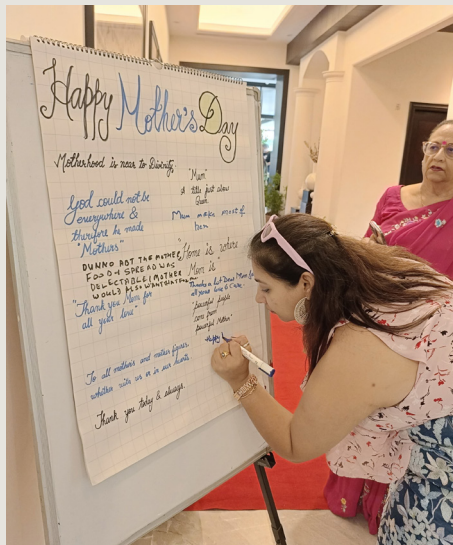 Happy Mother's Day
Motherhood is near to Divinity.
God could not be
everywhere &
therefore he made
Mothers"
DUNNO ABT THE MOTHER,
FOOD SPREAD WAS
DELECTABLE! MOTHER
WOULD ALSO WANT
"Thank you Mom for
all your love"
To all mothers and mother figures
whether with us or in our hearts.
Thank you today & always.
"Mum"
A title just above
Queen
Mum makes most of
"Home is where
Mom is"
all your love & Care
"peaceful people
come from
peaceful Mother"
Happy